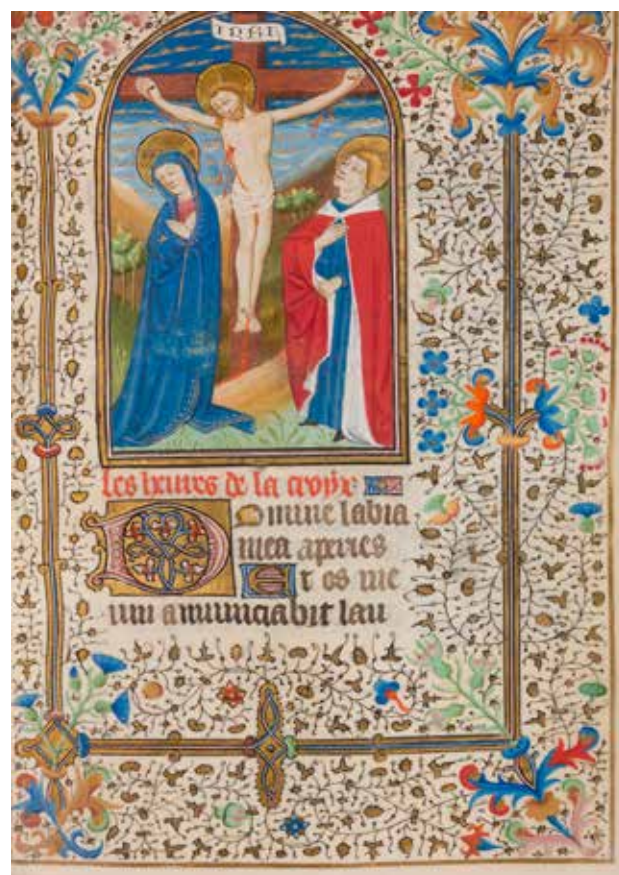 INRI
les heures de la croix
Domine labia
mea aperies
Et os me
um anunciabit lau